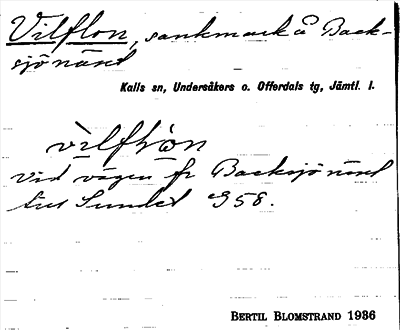 Vilflon, sankmark å Back-
sjönäset
Kalls sn, Undersåkers o. Offerdals tg, Jämtl. l.
vìlflòn
Vid vägen fr Backsjönäset
till Sundet 958.
BERTIL BLOMSTRAND 1936